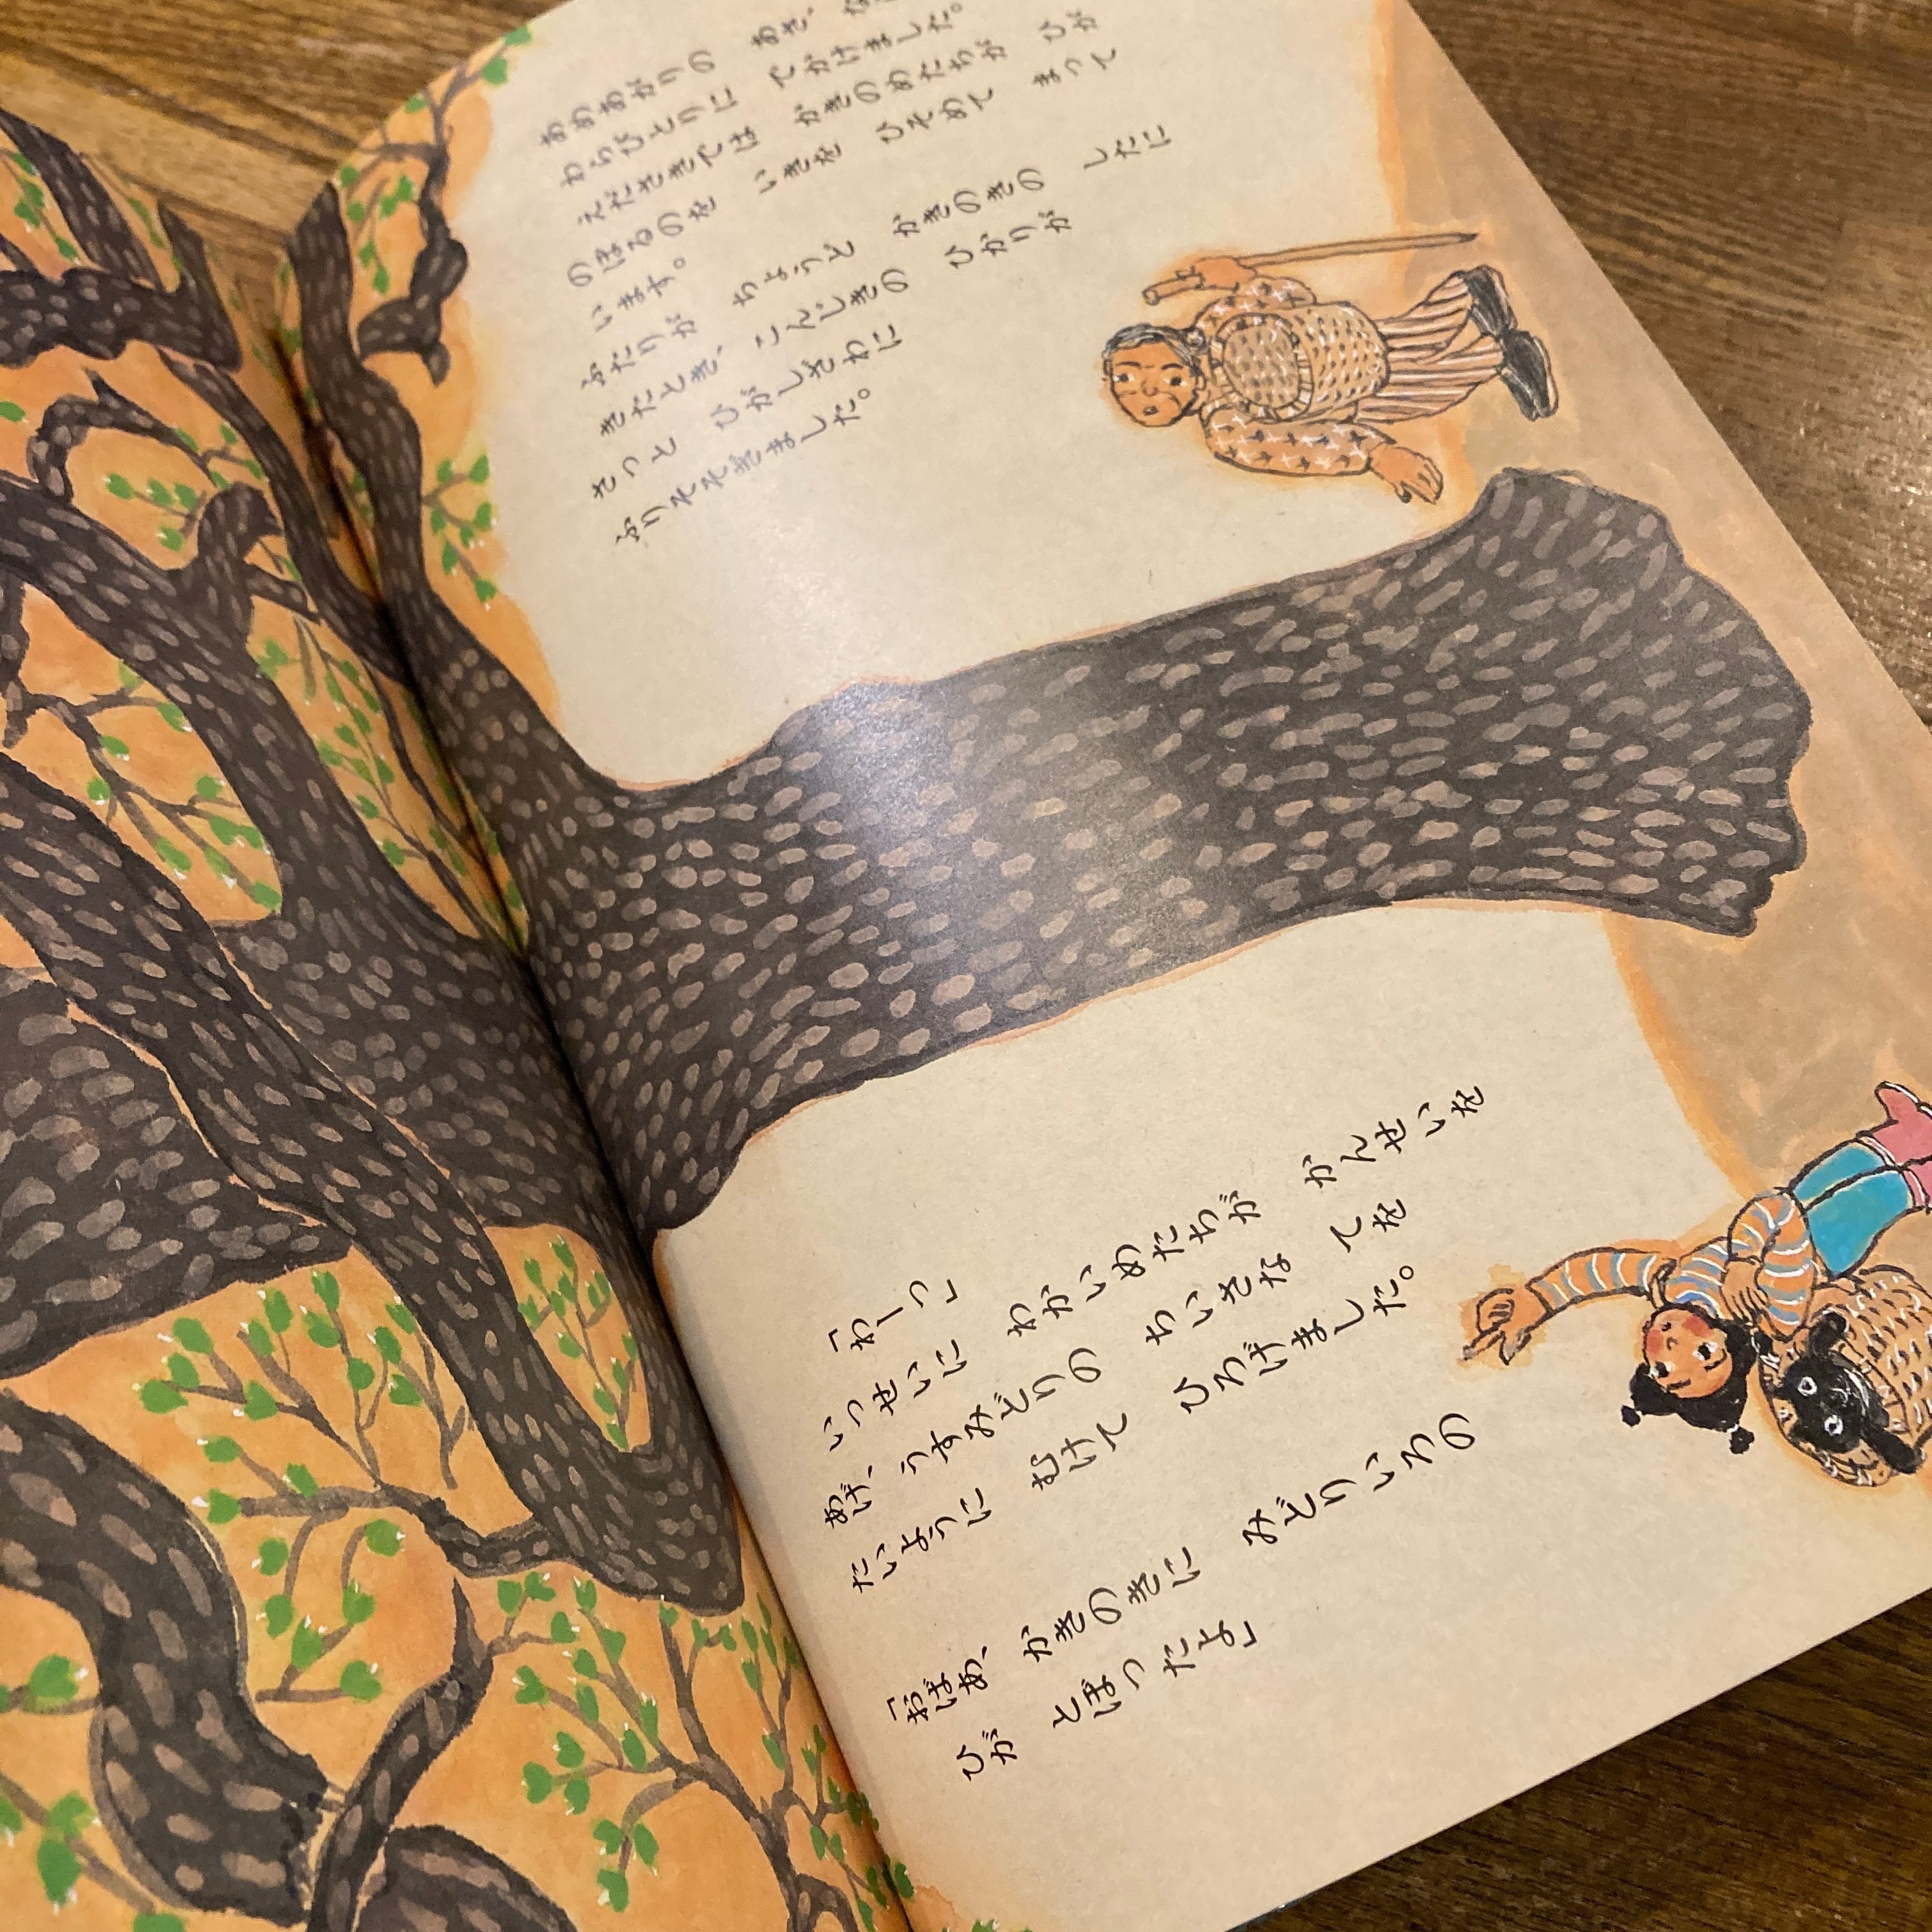 あめあがりの あさ、
わらびとりに でかけました。
えださきでは かきのめたちが ひが
のぼるのを いきを ひそめて まって
います。
ふたりが ちょうど かきのきの したに
きたとき、こんじきの ひかりが
さっと ひがしざわに
ふりそそぎました。
「わーっ」
いっせいに わかいめたちが かんせいを
あげ、うすみどりの ちいさな てを
たいように むけて ひろげました。
「おばあ、かきのきに みどりいろの
ひが とぼっただよ」